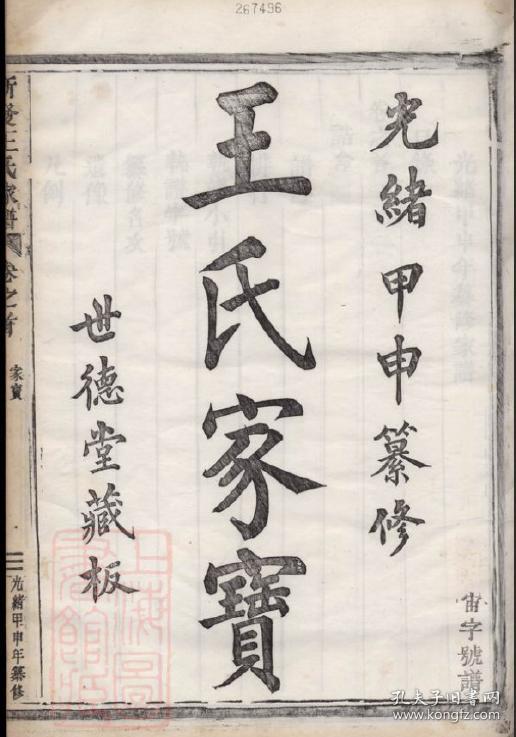 267496
光緒甲申纂修
王氏家寶
世德堂藏板
宙字號譜
王氏家譜 卷之首
家寶
光緒甲申年纂修
上海圖書館藏
孔夫子旧书网
www.kongfz.com